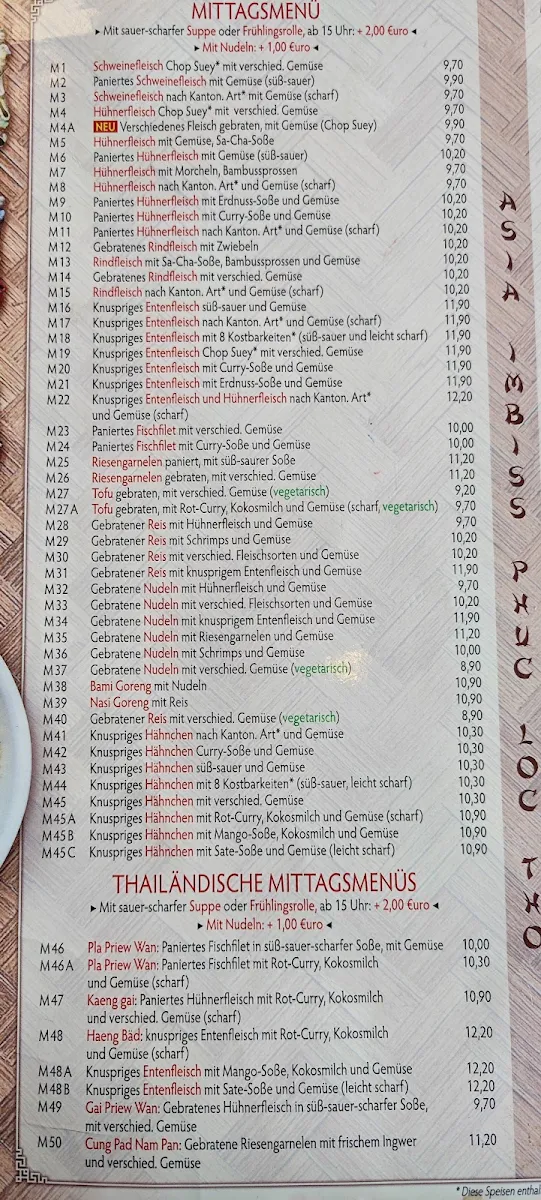 MITTAGSMENÜ
▸ Mit sauer-scharfer Suppe oder Frühlingsrolle, ab 15 Uhr: + 2,00 €uro ◂
▸ Mit Nudeln: + 1,00 €uro ◂
M1 Schweinefleisch Chop Suey* mit verschied. Gemüse 9,70
M2 Paniertes Schweinefleisch mit Gemüse (süß-sauer) 9,90
M3 Schweinefleisch nach Kanton. Art* mit Gemüse (scharf) 9,70
M4 Hühnerfleisch Chop Suey* mit verschied. Gemüse 9,70
M4A NEU Verschiedenes Fleisch gebraten, mit Gemüse (Chop Suey) 9,90
M5 Hühnerfleisch mit Gemüse, Sa-Cha-Soße 9,70
M6 Paniertes Hühnerfleisch mit Gemüse (süß-sauer) 10,20
M7 Hühnerfleisch mit Morcheln, Bambussprossen 9,70
M8 Hühnerfleisch nach Kanton. Art* und Gemüse (scharf) 9,70
M9 Paniertes Hühnerfleisch mit Erdnuss-Soße und Gemüse 10,20
M10 Paniertes Hühnerfleisch mit Curry-Soße und Gemüse 10,20
M11 Paniertes Hühnerfleisch nach Kanton. Art* und Gemüse (scharf) 10,20
M12 Gebratenes Rindfleisch mit Zwiebeln 10,20
M13 Rindfleisch mit Sa-Cha-Soße, Bambussprossen und Gemüse 10,20
M14 Gebratenes Rindfleisch mit verschied. Gemüse 10,20
M15 Rindfleisch nach Kanton. Art* und Gemüse (scharf) 10,20
M16 Knuspriges Entenfleisch süß-sauer und Gemüse 11,90
M17 Knuspriges Entenfleisch nach Kanton. Art* und Gemüse (scharf) 11,90
M18 Knuspriges Entenfleisch mit 8 Kostbarkeiten* (süß-sauer und leicht scharf) 11,90
M19 Knuspriges Entenfleisch Chop Suey* mit verschied. Gemüse 11,90
M20 Knuspriges Entenfleisch mit Curry-Soße und Gemüse 11,90
M21 Knuspriges Entenfleisch mit Erdnuss-Soße und Gemüse 11,90
M22 Knuspriges Entenfleisch und Hühnerfleisch nach Kanton. Art* 12,20
und Gemüse (scharf)
M23 Paniertes Fischfilet mit verschied. Gemüse 10,00
M24 Paniertes Fischfilet mit Curry-Soße und Gemüse 10,00
M25 Riesengarnelen paniert, mit süß-saurer Soße 11,20
M26 Riesengarnelen gebraten, mit verschied. Gemüse 11,20
M27 Tofu gebraten, mit verschied. Gemüse (vegetarisch) 9,20
M27A Tofu gebraten, mit Rot-Curry, Kokosmilch und Gemüse (scharf, vegetarisch) 9,70
M28 Gebratener Reis mit Hühnerfleisch und Gemüse 9,70
M29 Gebratener Reis mit Schrimps und Gemüse 10,20
M30 Gebratener Reis mit verschied. Fleischsorten und Gemüse 10,20
M31 Gebratener Reis mit knusprigem Entenfleisch und Gemüse 11,90
M32 Gebratene Nudeln mit Hühnerfleisch und Gemüse 9,70
M33 Gebratene Nudeln mit verschied. Fleischsorten und Gemüse 10,20
M34 Gebratene Nudeln mit knusprigem Entenfleisch und Gemüse 11,90
M35 Gebratene Nudeln mit Riesengarnelen und Gemüse 11,20
M36 Gebratene Nudeln mit Schrimps und Gemüse 10,00
M37 Gebratene Nudeln mit verschied. Gemüse (vegetarisch) 8,90
M38 Bami Goreng mit Nudeln 10,90
M39 Nasi Goreng mit Reis 10,90
M40 Gebratener Reis mit verschied. Gemüse (vegetarisch) 8,90
M41 Knuspriges Hähnchen nach Kanton. Art* und Gemüse 10,30
M42 Knuspriges Hähnchen Curry-Soße und Gemüse 10,30
M43 Knuspriges Hähnchen süß-sauer und Gemüse 10,30
M44 Knuspriges Hähnchen mit 8 Kostbarkeiten* (süß-sauer, leicht scharf) 10,30
M45 Knuspriges Hähnchen mit verschied. Gemüse 10,30
M45A Knuspriges Hähnchen mit Rot-Curry, Kokosmilch und Gemüse (scharf) 10,90
M45B Knuspriges Hähnchen mit Mango-Soße, Kokosmilch und Gemüse 10,90
M45C Knuspriges Hähnchen mit Sate-Soße und Gemüse (leicht scharf) 10,90
THAILÄNDISCHE MITTAGSMENÜS
▸ Mit sauer-scharfer Suppe oder Frühlingsrolle, ab 15 Uhr: + 2,00 €uro ◂
▸ Mit Nudeln: + 1,00 €uro ◂
M46 Pla Priew Wan: Paniertes Fischfilet in süß-sauer-scharfer Soße, mit Gemüse 10,00
M46A Pla Priew Wan: Paniertes Fischfilet mit Rot-Curry, Kokosmilch 10,30
und Gemüse (scharf)
M47 Kaeng gai: Paniertes Hühnerfleisch mit Rot-Curry, Kokosmilch 10,90
und verschied. Gemüse (scharf)
M48 Haeng Bäd: knuspriges Entenfleisch mit Rot-Curry, Kokosmilch 12,20
und Gemüse (scharf)
M48A Knuspriges Entenfleisch mit Mango-Soße, Kokosmilch und Gemüse 12,20
M48B Knuspriges Entenfleisch mit Sate-Soße und Gemüse (leicht scharf) 12,20
M49 Gai Priew Wan: Gebratenes Hühnerfleisch in süß-sauer-scharfer Soße, 9,70
mit verschied. Gemüse
M50 Cung Pad Nam Pan: Gebratene Riesengarnelen mit frischem Ingwer 11,20
und verschied. Gemüse
ASIA IMBISS PHUC LOC THO
* Diese Speisen enthal